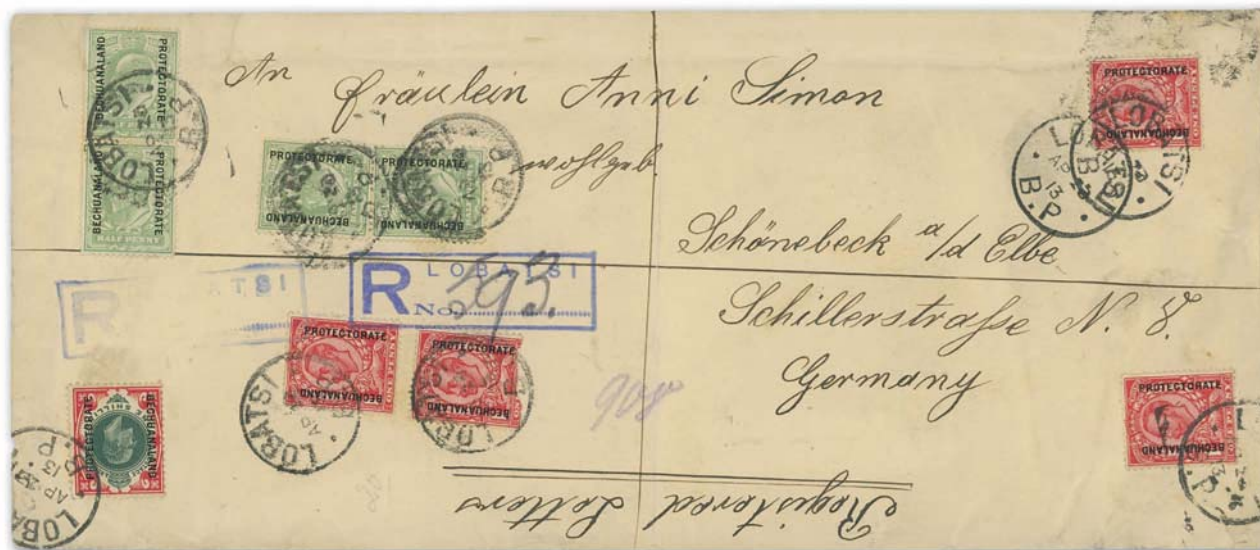 An Fräulein Anni Simon
wohlgeb.
Schönebeck a/d Elbe
Schillerstraße N. 8.
Germany
Registered Letters
R LOBATSI
No. 593.
R ATSI
908
BECHUANALAND PROTECTORATE
BECHUANALAND PROTECTORATE
HALF PENNY
PROTECTORATE
BECHUANALAND
PROTECTORATE
BECHUANALAND
PROTECTORATE
BECHUANALAND
PROTECTORATE
BECHUANALAND
PROTECTORATE
BECHUANALAND
PROTECTORATE
BECHUANALAND
PROTECTORATE BECHUANALAND
LOBATSI B.P
LOBATSI
LOBATSI
AP 13
B.P
LOBATSI
LOBATSI
AP
LOBATSI
B.P
AP
13